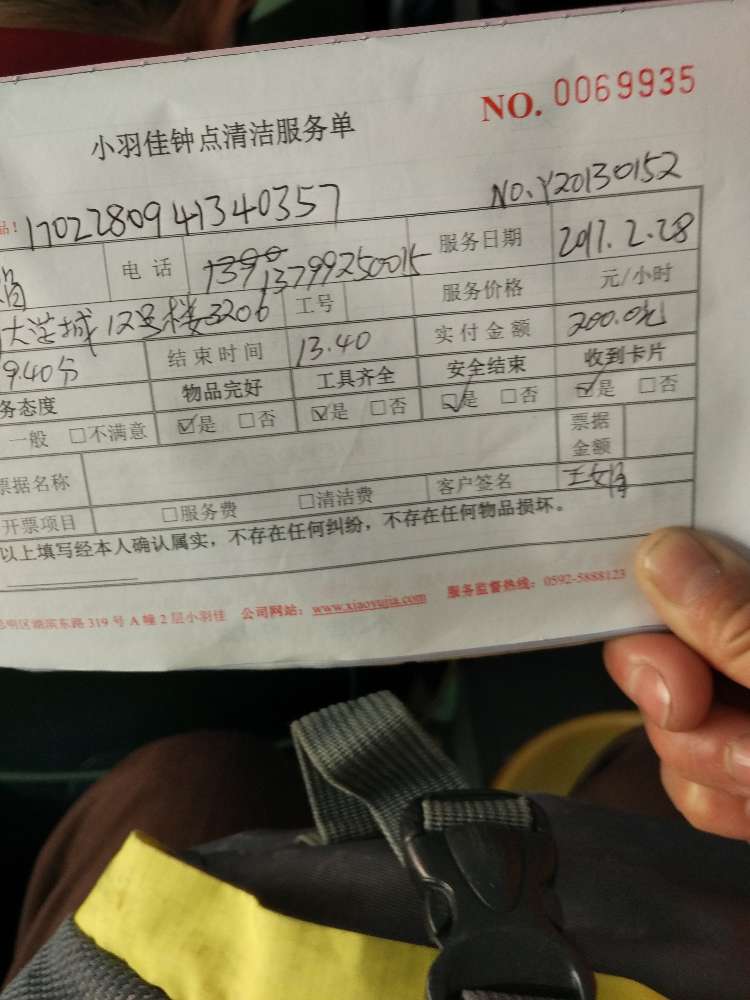 NO. 0069935
小羽佳钟点清洁服务单
1702280941340357
NO.Y20130152
电 话 1390 13799250015 服务日期 2017.2.28
大学城 12号楼3206 工号 服务价格 元/小时
9.40分 结束时间 13.40 实付金额 200.0元
务态度 物品完好 工具齐全 安全结束 收到卡片
一般 □不满意 ☑是 □否 ☑是 □否 ☑是 □否 ☑是 □否
票据名称 票据金额
开票项目 □服务费 □清洁费 客户签名
以上填写经本人确认属实，不存在任何纠纷，不存在任何物品损坏。
明区湖滨东路 319 号 A 幢 2 层小羽佳 公司网站：www.xiaoyujia.com 服务监督热线：0592-5888123